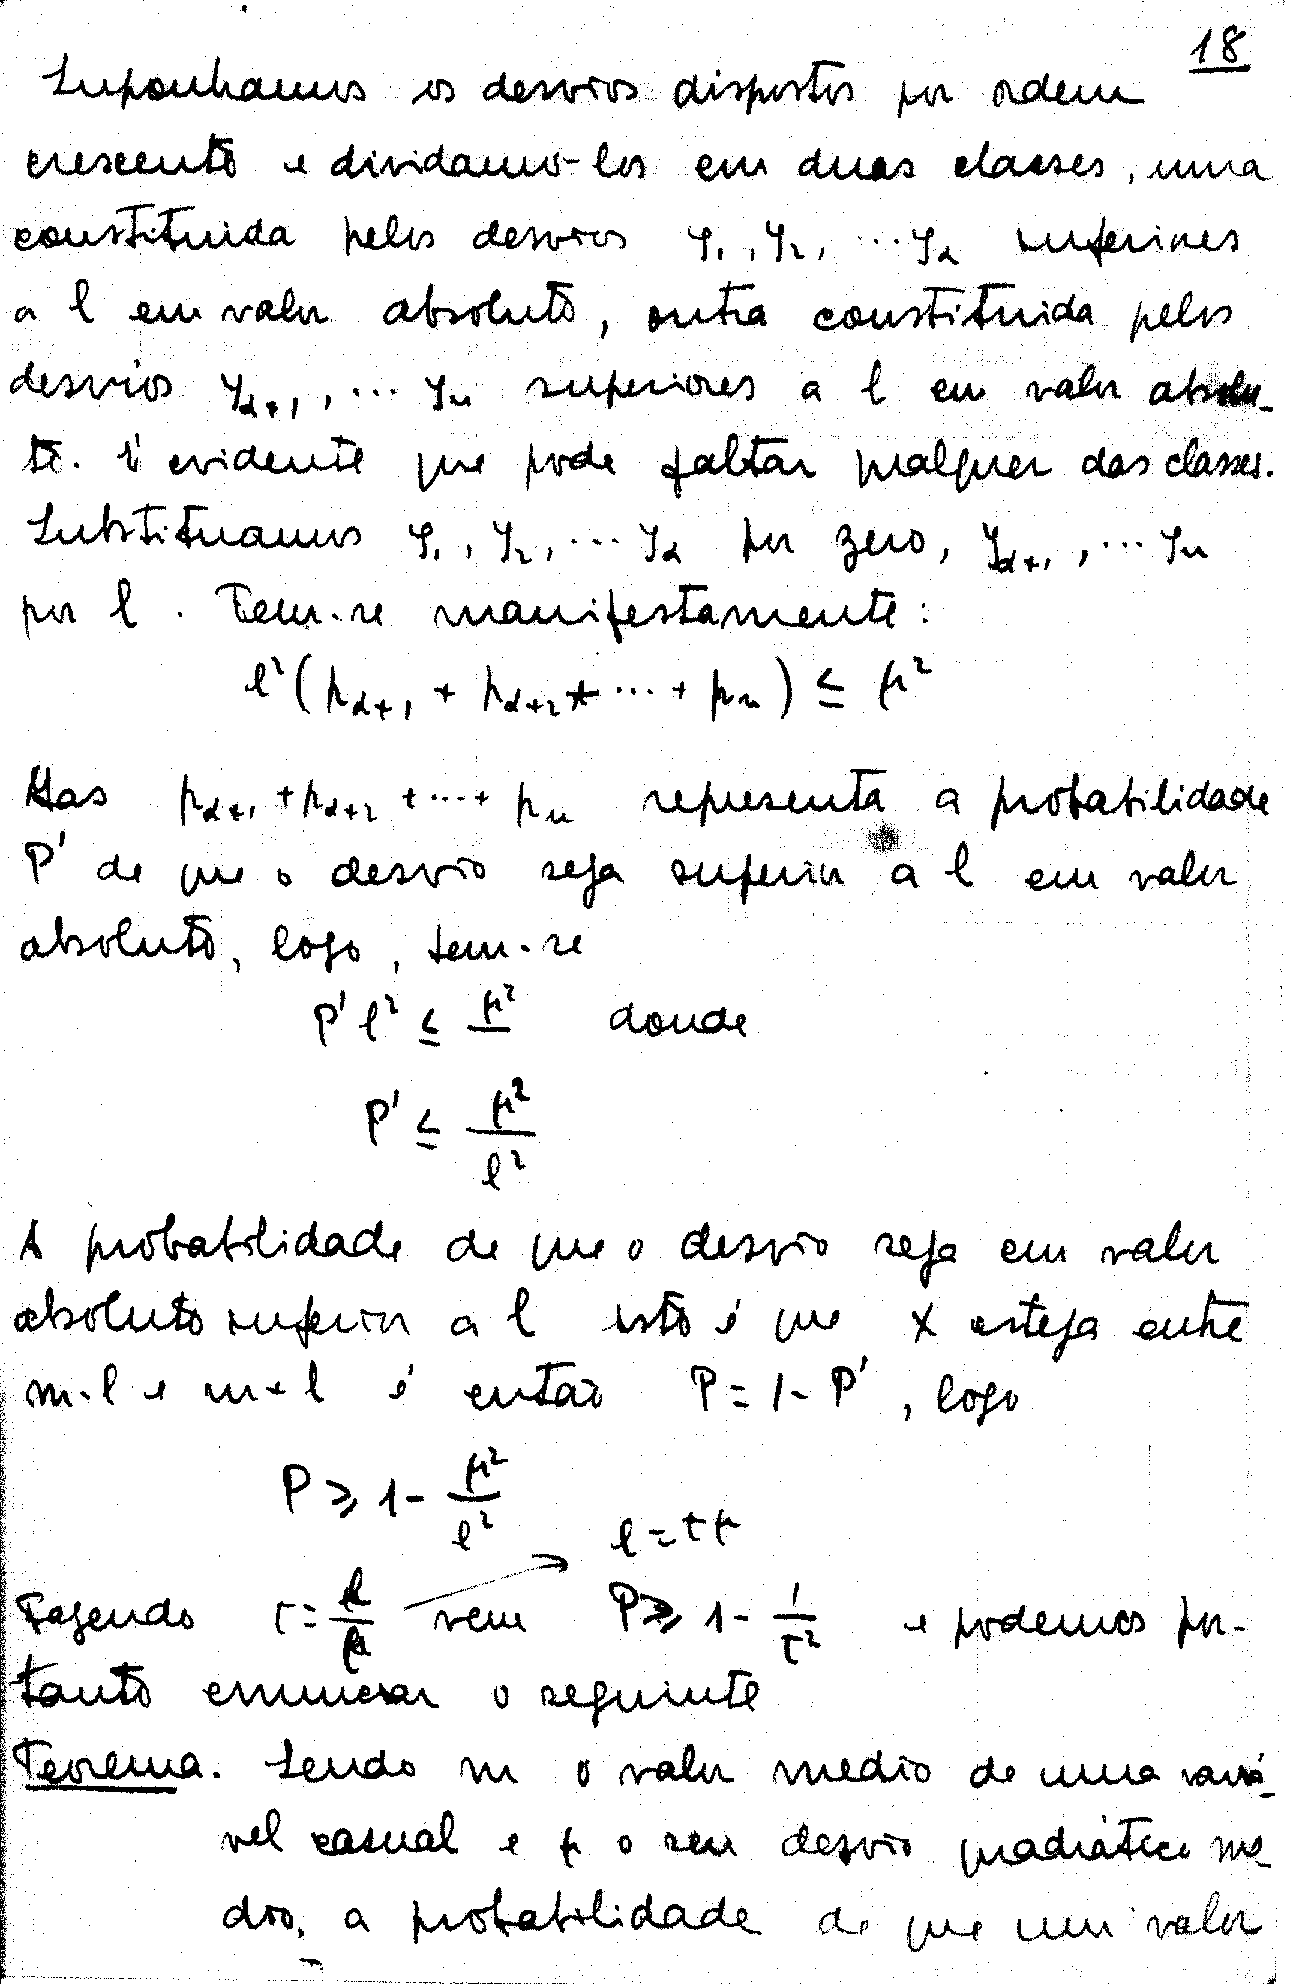 18
Suponhamos os desvios dispostos por ordem
crescente e dividamo-los em duas classes, uma
constituida pelos desvios y₁, y₂, ... y_α inferiores
a l em valor absoluto, outra constituida pelos
desvios y_{α+1}, ... y_n superiores a l em valor absolu-
to. É evidente que pode faltar qualquer das classes.
Substituamos y₁, y₂, ... y_α por zero, y_{α+1}, ... y_n
por l. Tem-se manifestamente:
l²(p_{α+1} + p_{α+2} + ... + p_n) ≤ μ²
Mas p_{α+1} + p_{α+2} + ... + p_n representa a probabilidade
P' de que o desvio seja superior a l em valor
absoluto, logo, tem-se
P' l² ≤ μ² donde
P' ≤ μ²/l²
A probabilidade de que o desvio seja em valor
absoluto inferior a l isto é que X esteja entre
m-l e m+l é então P = 1 - P', logo
P ≥ 1 - μ²/l²
l = tμ
Fazendo t = l/μ vem P ≥ 1 - 1/t² e podemos por-
tanto enunciar o seguinte
Teorema. Sendo m o valor medio de uma variá-
vel casual e μ o seu desvio quadrático mé-
dio, a probabilidade de que um valor